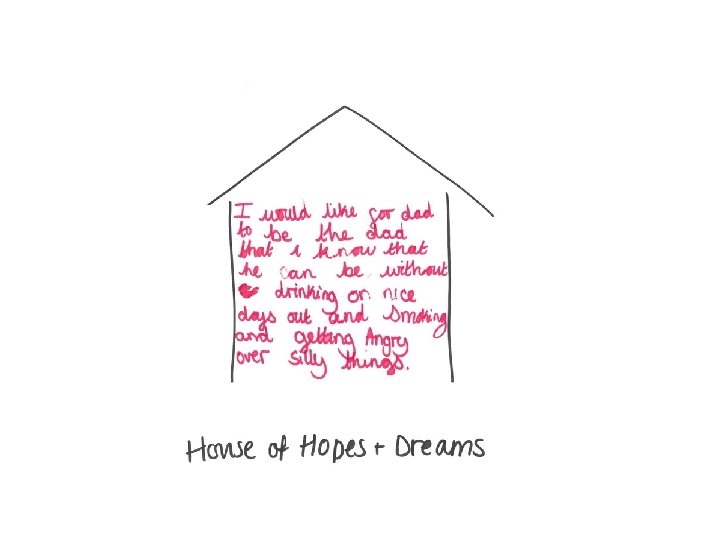 I would like for dad
to be the dad
that i know that
he can be without
drinking on nice
days out and smoking
and getting Angry
over silly things.
House of Hopes + Dreams